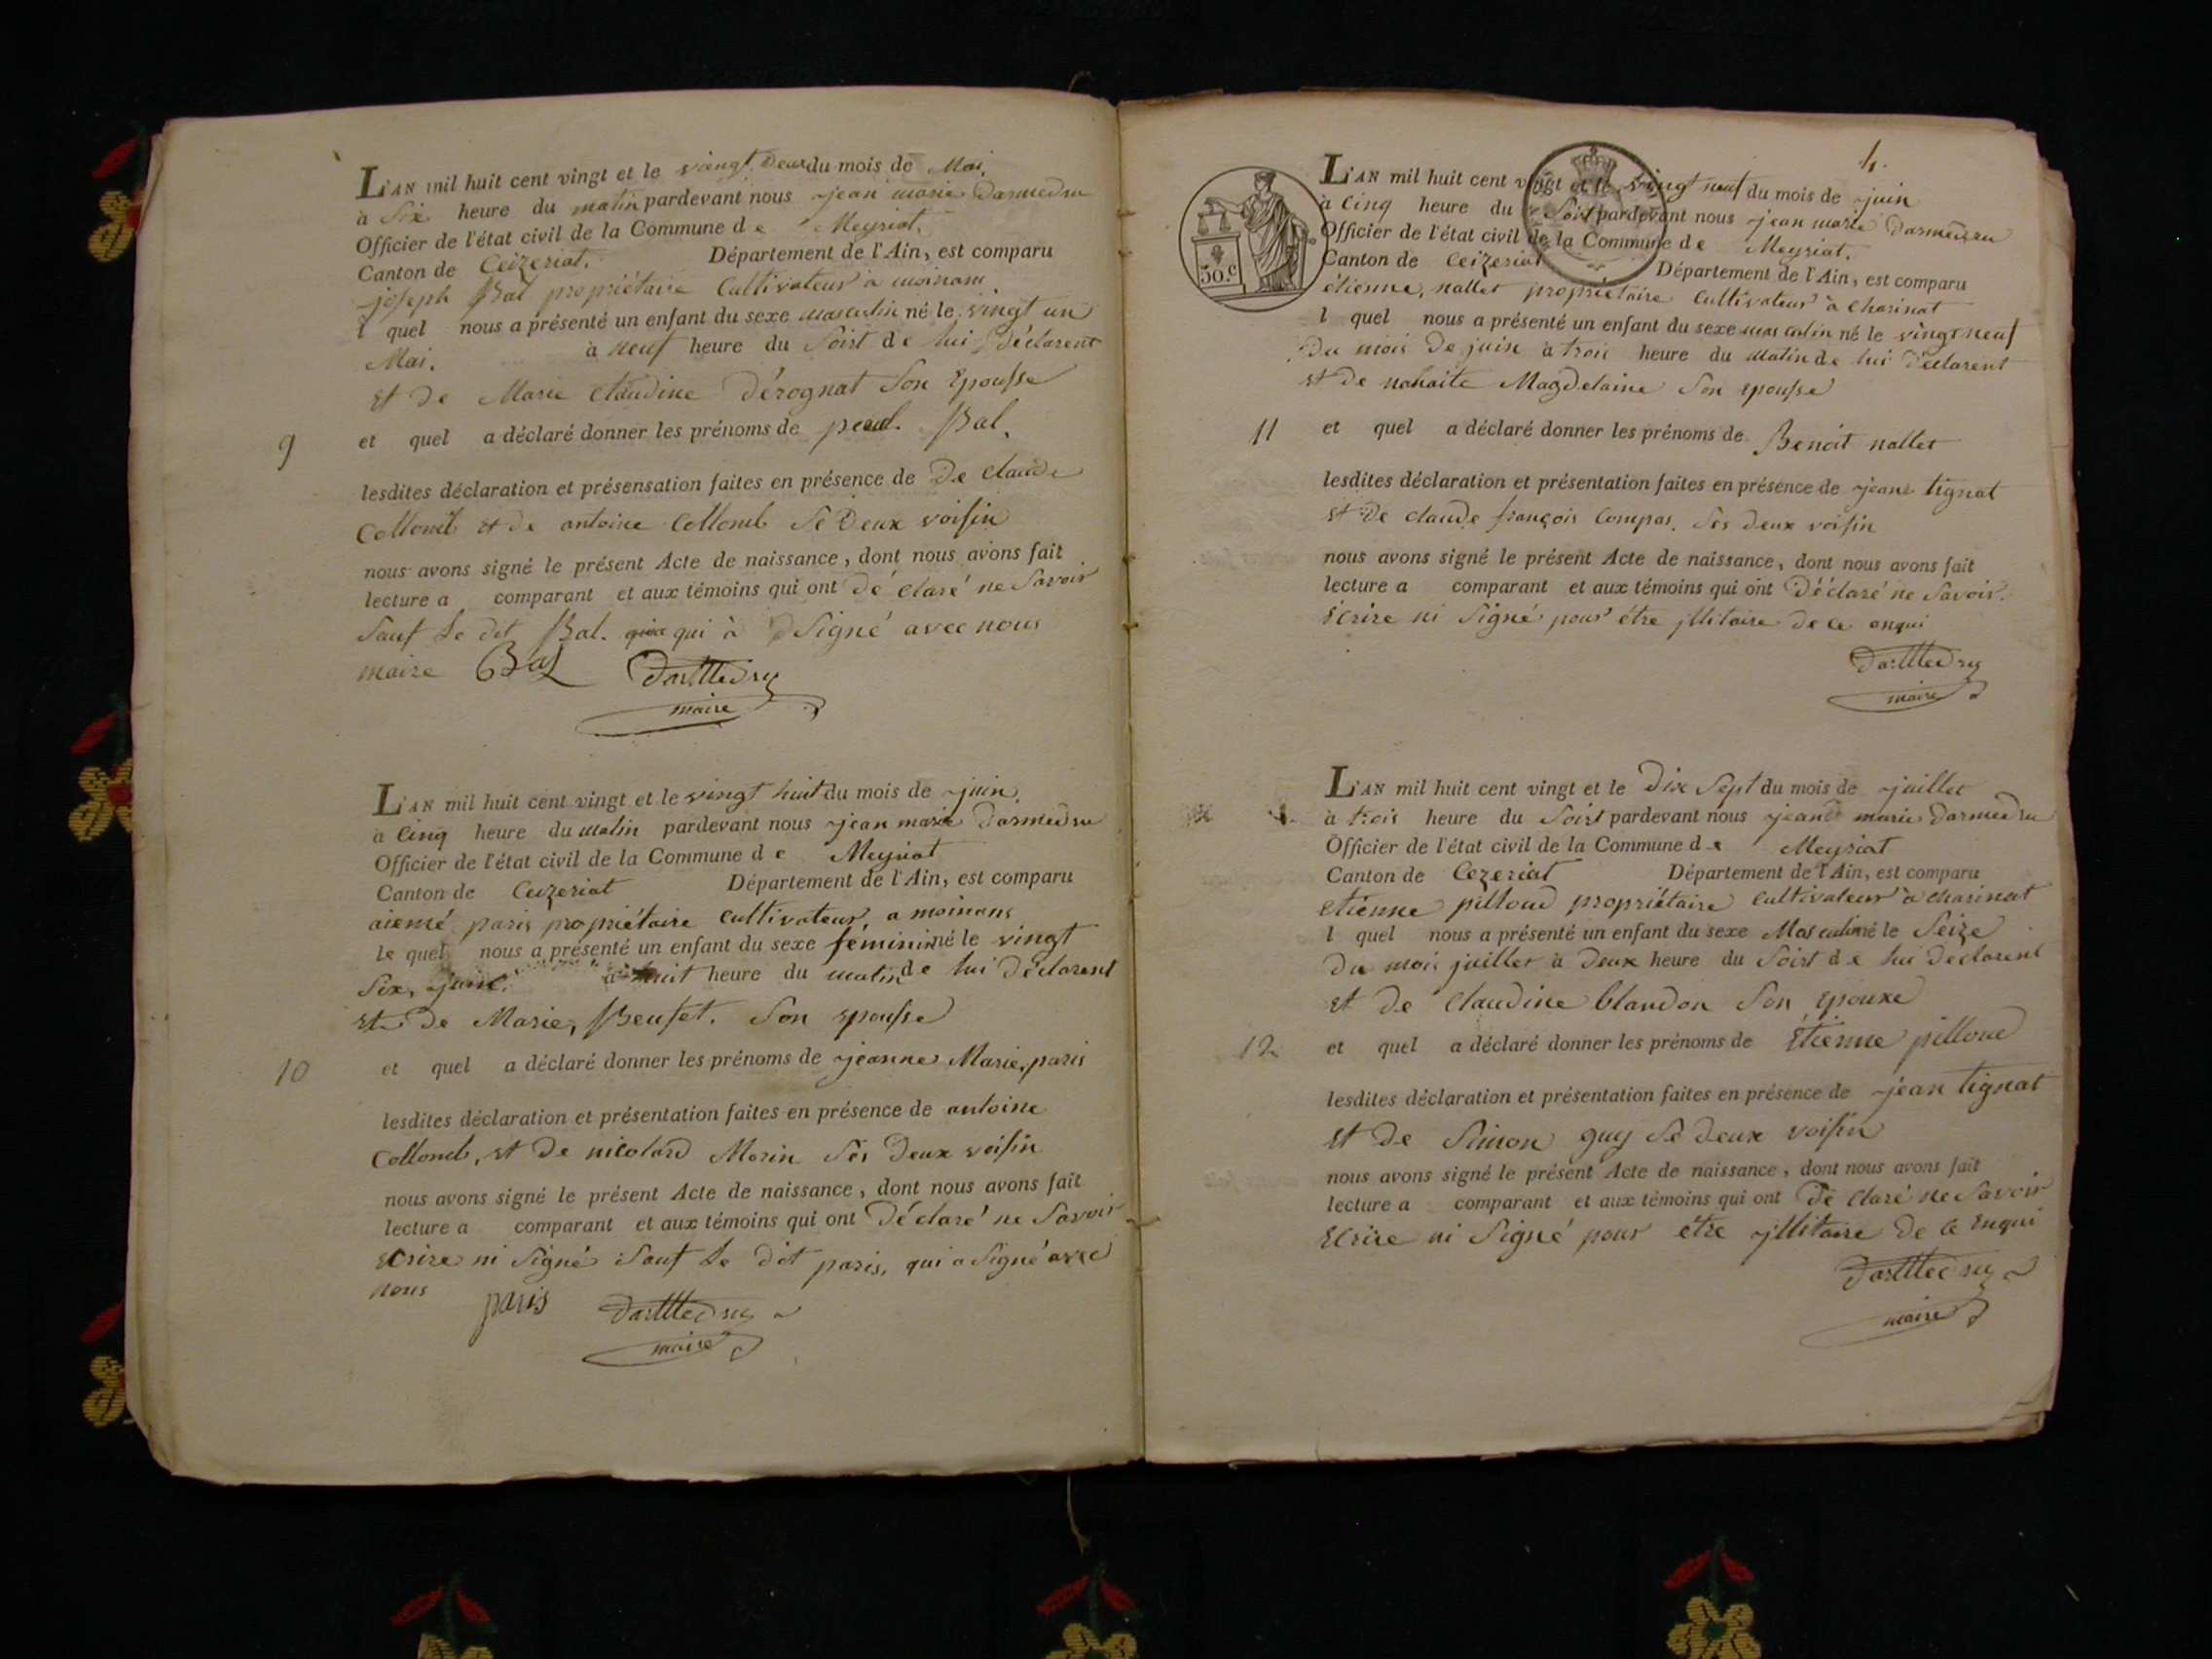 L'AN mil huit cent vingt et le vingt Deux du mois de Mai.
à Six heure du matin pardevant nous jean marie Darmedru
Officier de l'état civil de la Commune de Meyriat.
Canton de Ceizeriat. Département de l'Ain, est comparu
joseph Bal propriétaire Cultivateur à moinans
l quel nous a présenté un enfant du sexe masculin né le vingt un
Mai. à neuf heure du Soirt de lui Déclarent
et De Marie Claudine Dérognat Son Epousse
9 et quel a déclaré donner les prénoms de Bal.
lesdites déclaration et présensation faites en présence de De Claude
Collomb et de antoine Collomb Sé Deux voisin
nous avons signé le présent Acte de naissance, dont nous avons fait
lecture a comparant et aux témoins qui ont Dé claré ne Savoir
Sauf Le dit Bal. qui à Signé avec nous
maire Bal Darmedru
maire
L'AN mil huit cent vingt et le vingt huit du mois de juin.
à Cinq heure du matin pardevant nous jean marie Darmedru
Officier de l'état civil de la Commune de Meyriat
Canton de Ceizeriat Département de l'Ain, est comparu
aiemé paris propriétaire Cultivateur a moinans
le quel nous a présenté un enfant du sexe féminin né le vingt
Six, juin. à huit heure du matin de lui Déclarent
et De Marie, Beufet. Son epousse
10 et quel a déclaré donner les prénoms de jeanne Marie, paris
lesdites déclaration et présentation faites en présence de antoine
Collomb, et De nicolard Morin Sés Deux voisin
nous avons signé le présent Acte de naissance, dont nous avons fait
lecture a comparant et aux témoins qui ont Déclaré ne Savoir
Ecrire ni Signé Sauf Le Dit paris, qui a Signé avec
nous paris Darmedru
maire
4.
L'AN mil huit cent vingt et le vingt neuf du mois de juin
à Cinq heure du Soirt pardevant nous jean marie Darmedru
Officier de l'état civil de la Commune de Meyriat.
Canton de Ceizeriat Département de l'Ain, est comparu
50.c
étienne, nallet propriétaire Cultivateur à Charinat
l quel nous a présenté un enfant du sexe mas culin né le vingt neuf
Du mois De juin à trois heure du Matin de lui Déclarent
et De Magdelaine Son epousse
11 et quel a déclaré donner les prénoms de Benoit nallet
lesdites déclaration et présentation faites en présence de jean tignat
et De claude françois Compas. Sés deux voisin
nous avons signé le présent Acte de naissance, dont nous avons fait
lecture a comparant et aux témoins qui ont Déclaré ne Savoir.
écrire ni Signé pour être jllitaire de ce anqui
Darmedru
maire
L'AN mil huit cent vingt et le Dix Sept du mois de juillet
à trois heure du Soirt pardevant nous jean marie Darmedru
Officier de l'état civil de la Commune de Meyriat
Canton de Cezeriat Département de l'Ain, est comparu
etienne pilloud propriétaire Cultivateur à charinat
l quel nous a présenté un enfant du sexe Masculin né le Seize
Du mois juillet à Deux heure du Soirt de lui Déclarent
et De Claudine blandon Son epouxe
12 et quel a déclaré donner les prénoms de Etienne pilloud
lesdites déclaration et présentation faites en présence de jean tignat
et de Simon guy Sé deux voisin
nous avons signé le présent Acte de naissance, dont nous avons fait
lecture a comparant et aux témoins qui ont Dé claré ne Savoir
Ecrire ni Signé pour être jllitaire De ce Enqui
Darmedru
maire